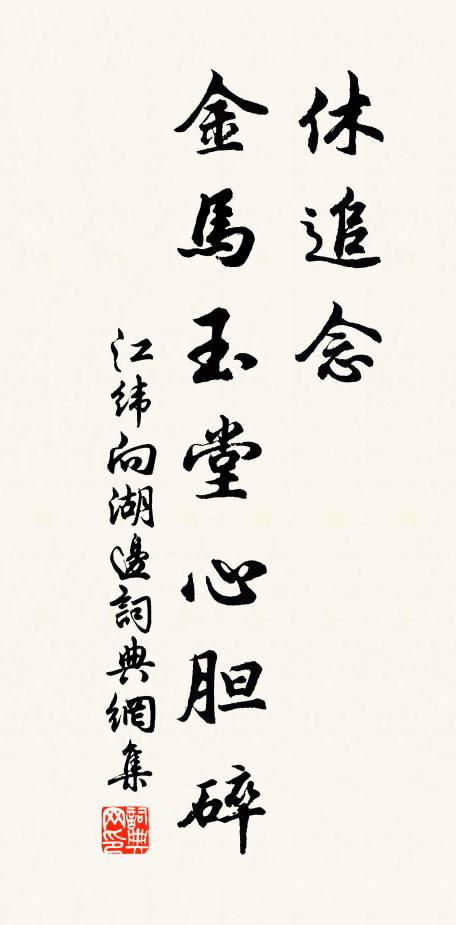 休追念
金馬玉堂心胆碎
江緯向湖邊詞典網集
詞典网印